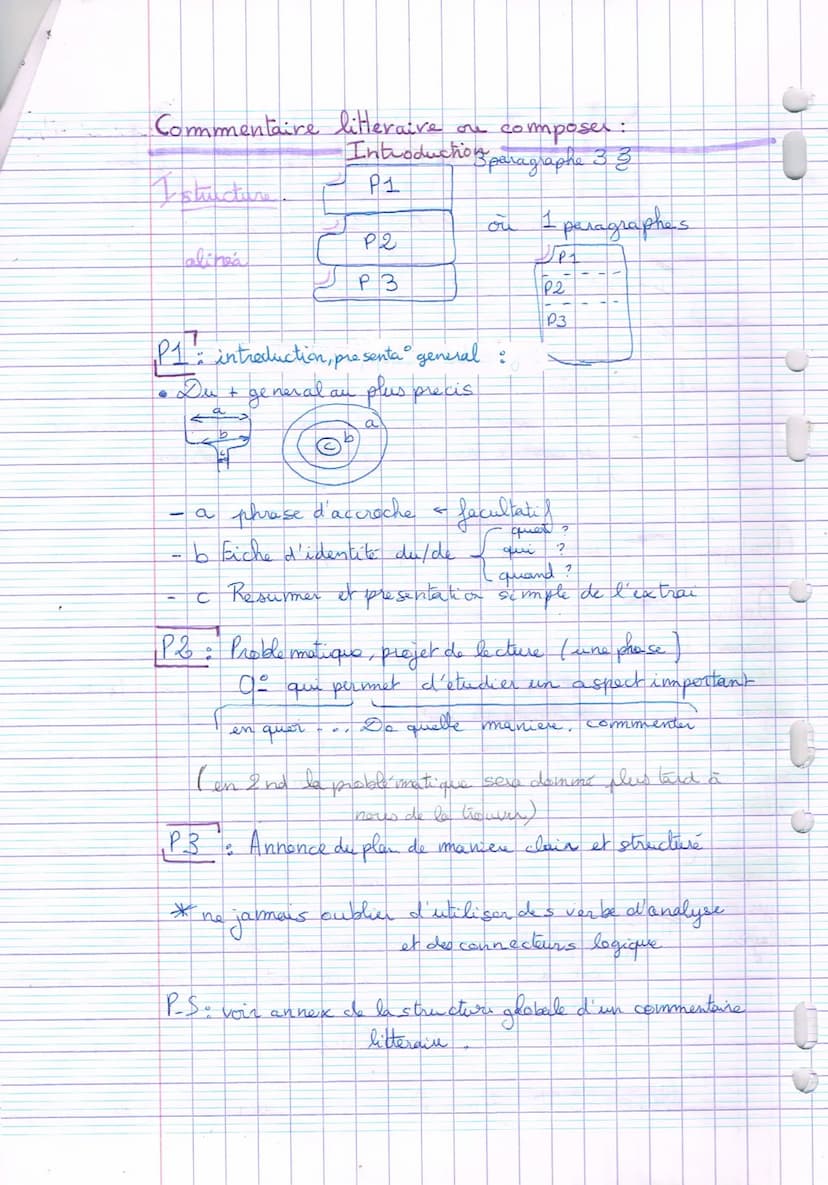 Commentaire litteraire ou composer :
Introduction
3 paragraphe 3
I structure.
P1
où 1 paragraphes
alinéa
P2
P1
P 3
P2
P3
P1 : introduction, presenta° general :
• Du + general au plus precis
a
a
b
b
c
c
- a phrase d'accroche facultatif
quoi ?
- b Fiche d'identité du/de { qui ?
quand ?
- c Resumer et presentation simple de l'extrai
P2 : Problematique, projet de lecture (une phase)
qui permet d'étudier un aspect important
en quoi ... De quelle maniere, commenter
(en 2nd la problématique sera donné plus tard à
nous de la trouver)
P3 : Annonce du plan de maniere clair et structuré
* ne jamais oublier d'utiliser des verbe d'analyse
et des connecteurs logique
P-S : voir annex de la structure globale d'un commentaire
litteraire.